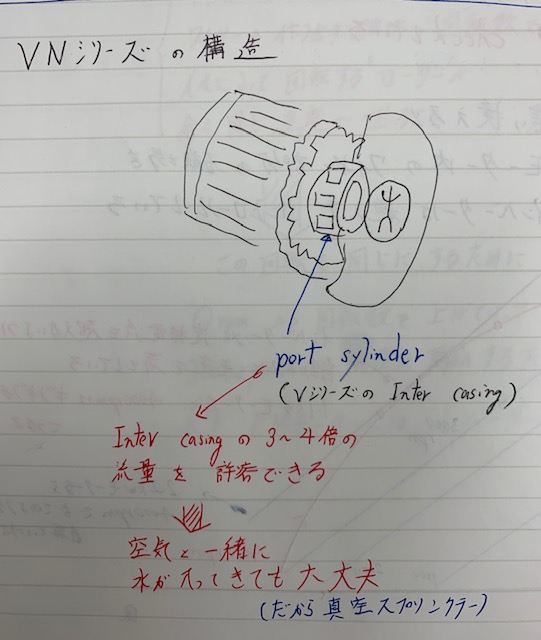 VNシリーズの構造
port sylinder
(Vシリーズの Inter casing)
Inter casingの3~4倍の
流量を許容できる
空気と一緒に
水が入ってきても大丈夫
(だから真空スプリンクラー)